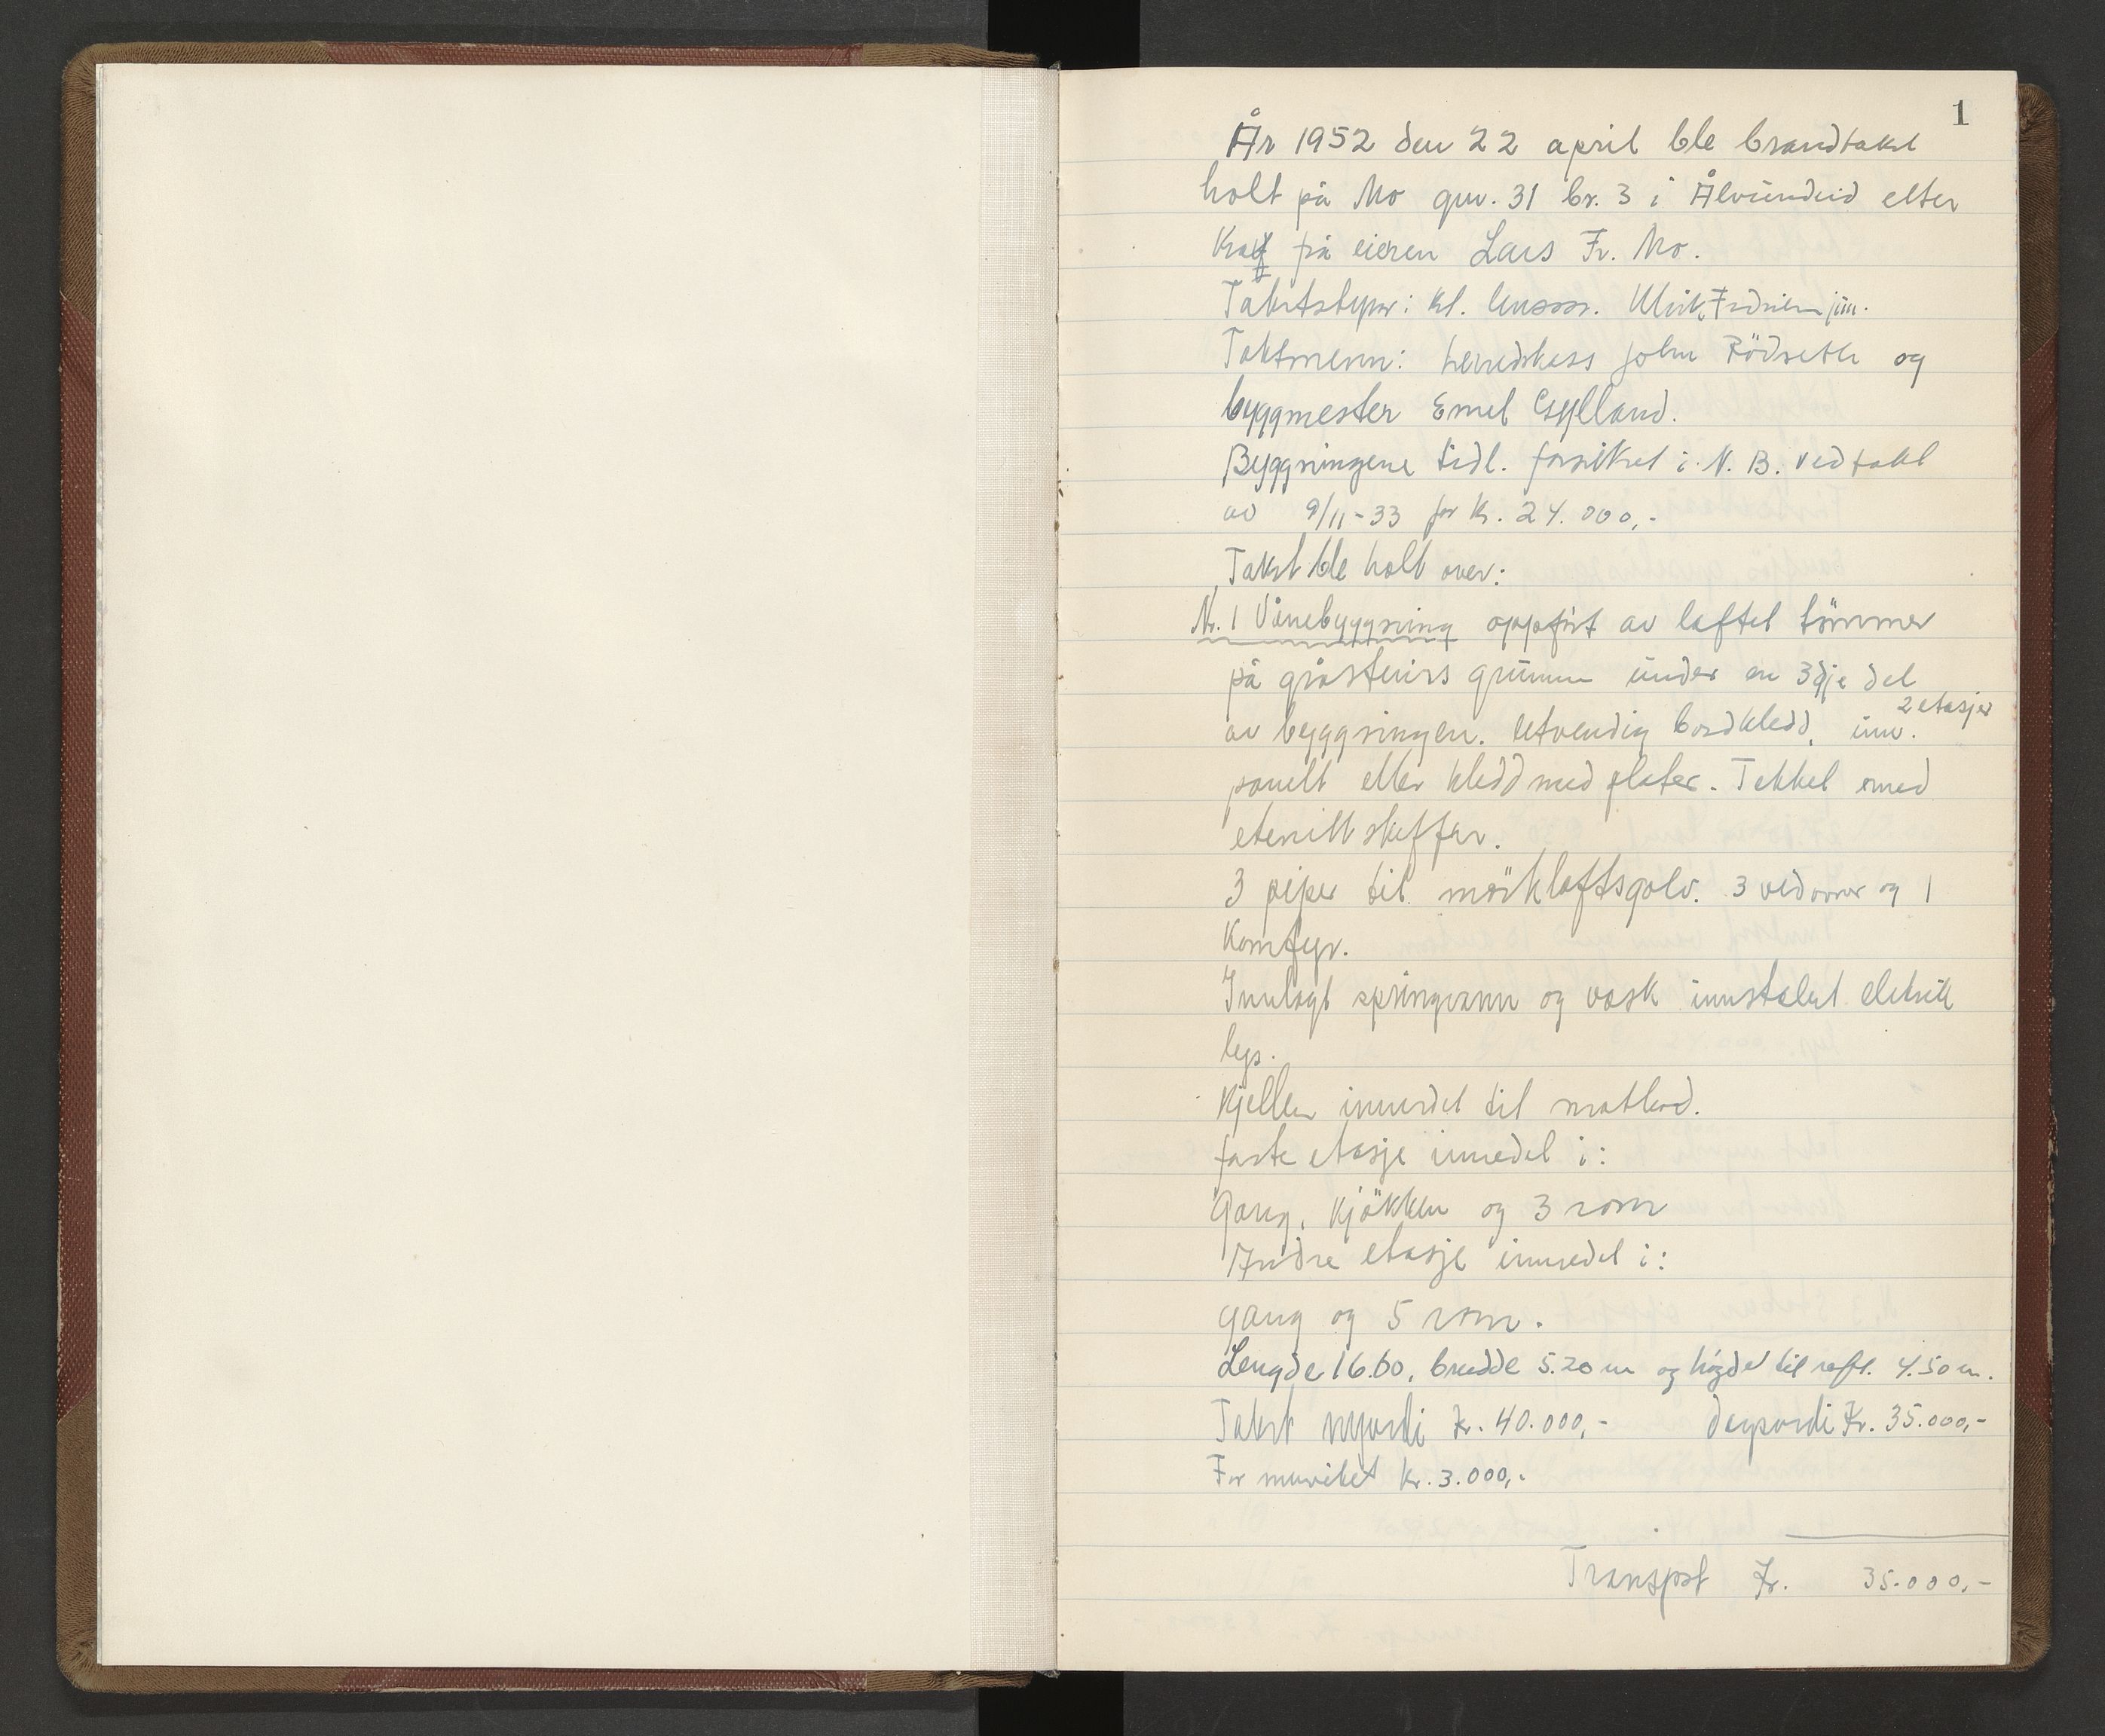 1
År 1952 den 22 april ble brandtakst
holt på Mo gnr. 31 br. 3 i Ålvundeid etter
krav frå eieren Lars Fr. Mo.
Takstmenn: herredskass John Rödseth og
byggmester Emel Gylland.
Byggningene tidl. forsikret i N. B. ved takst
av 9/11-33 for kr. 24.000,-
Takst ble holt over:
Nr. 1 Vånebyggning oppfört av laftet tömmer
på gråsteins grunnm under en 3dje del
av byggningen. Utvendig bordkledd, inv. 2 etasjer
panelt eller kledd med plater. Tekket med
etenitt skiffer.
3 piper til mörkloftsgolv. 3 vedovner og 1
Komfyr.
Innlagt springvann og vask innstalert eletrikk
lys.
Kjeller innredet til matbod.
förste etasje innredet i:
Gang, kjökken og 3 rom
Andre etasje innredet i:
gang og 5 rom.
Lengde 16.60, bredde 5.20 m og högde til raft. 4.50 m.
Takst nyverdi kr. 40.000,- dagsverdi Kr. 35.000,-
For murviket kr. 3.000,-
Transport Kr. 35.000,-